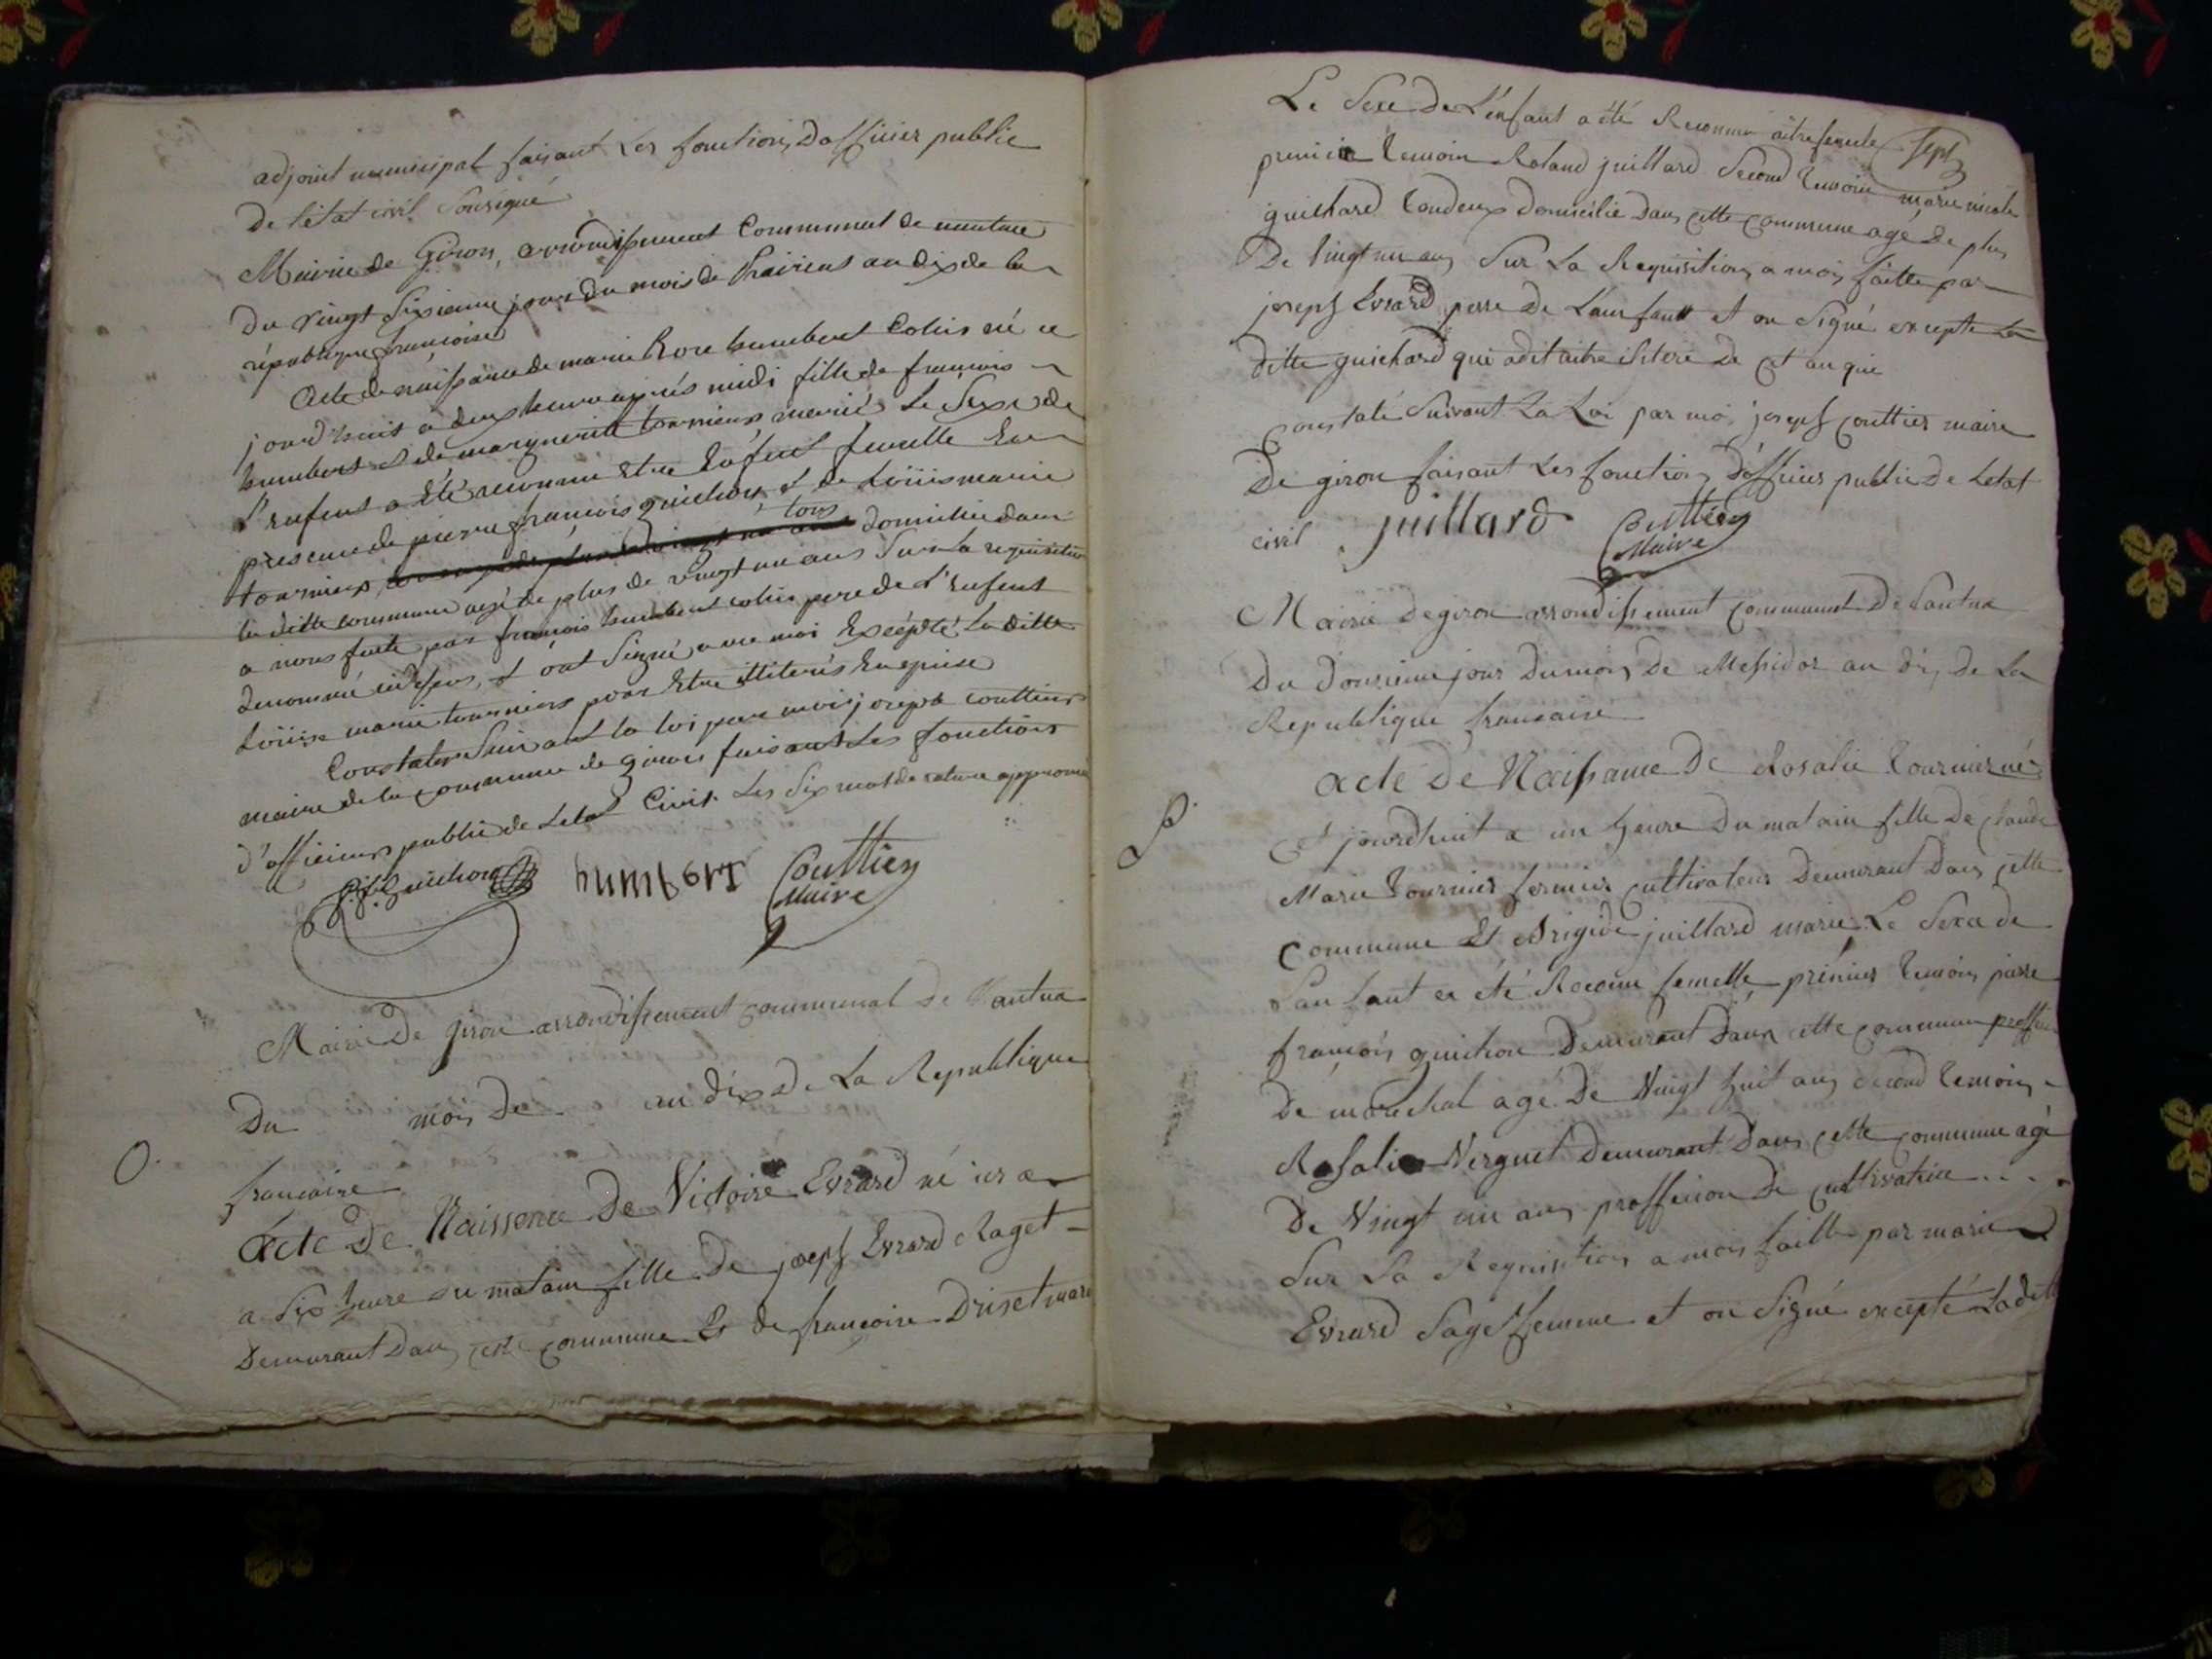 adjoint municipal faisant les fonctions dofficier public
De létat civil Sousigné
Mairie de Giron, arrondissement Communal de nantua
Du vingt Sixieme jour du mois de Prairial an dix de la
république françoise
Acte de naissance de marie Rose humbert Colin né ce
jourdhuis a deux heure après midi fille de francois
humbert et de marguerite tournieux mariés Le Sexe de
l'enfent a été reconnu Etre Enfent femelle En
presence de pierre francois guichon et de Loüis marie
tournieux tous domicilié dans
la ditte commune agé de plus de vingt un ans Sur la requisition
a nous faite par francois humbert colin pere de l'enfent
denommé cidessus, et ont Signé avec moi Excepté la ditte
Loüise marie tourniers pour Etre illiterés Enquise
Constater Suivant la loi par moi joseph couttier
maire de la commune de giron faisant les fonctions
d'officiers public de Letat Civil. Les Six mots de rature approuvé
P. f. Guichon humbert Couttier
Maire
Mairie De giron arrondissement communal De Nantua
Du mois De an dix De La Republique
O.
francaise
Acte De Naissence De Victoire Evrard né ier a
a Six heure du matain fille De joseph Evrard Raget
Demeurant Dans cette commune Et de francoise Driset mari
Le Sexe De L'enfant a été Reconnu aitre femelle
Sept
premier temoin Roland juillard Second temoin marie nicole
guichard toudeux Domicilié Dans cette commune agé De plus
De Vingt un ans Sur La Requisition a moi faitte par
joseph Evrard perre De L'aunfant et on Signé excepte La
ditte guichard qui a dit aitre iliteré De ce anquie
constaté Suivant La Loi par moi joseph couttier maire
De giron faisant Les fonction D'officier public De Letat
civil juillard Couttier
Maire
Mairie De giron arrondissement communal De Nantua
Du Douzieme jour Du mois De Messidor an dix De La
Republique francaise
acte De Naissance De Rosalie tournier né
P.
Et jourdhuit a un heure Du matain fille De claude
Marie tournier fermier cultivateur Demeurant Dans cette
commune Et Brigide juillard marié Le Sexa de
Lau fant a été Reconu femelle premier temoin pierre
francois guichon Demeurant Dans cette commune proffesion
De marechal agé De Vingt huit ans Second temoin
Rosalie Verguet Demeurant Dans cette commune agé
De Vingt un ans proffesion De cultivatrice . . . .
Sur La Requisition a moi faitte par marie
Evrard Sage femme et on Signé excepté Laditte